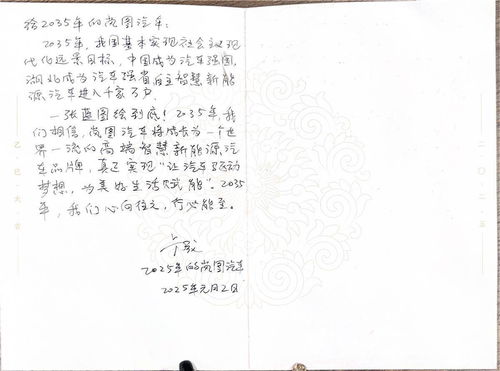 给2035年的岚图汽车:
2035年,我国基本实现社会主义现
代化远景目标,中国成为汽车强国,
湖北成为汽车强省,自主智慧新能
源汽车进入千家万户。
一张蓝图绘到底!2035年,我
们相信,岚图汽车将成长为一个世
界一流的高端智慧新能源汽
车品牌,真正实现“让汽车驱动
梦想,为美好生活赋能”。2035
年,我们心向往之,行必能至。
2025年的岚图汽车
2025年元月2日
乙巳大吉
二〇二五